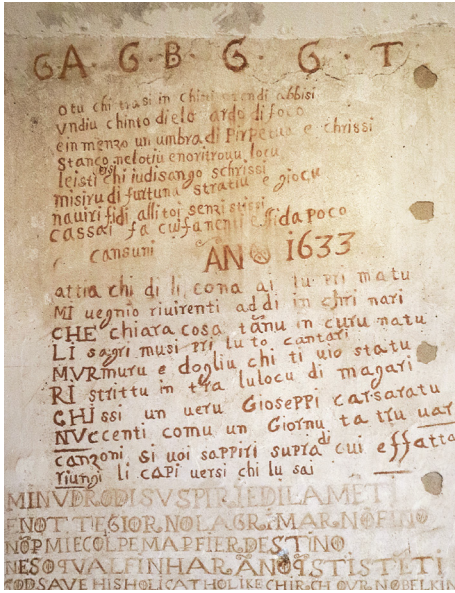 GA · G · B · G · G · T
o tu chi trasi in chisti orrendi abbisi
undiu chinto di elo ardo di foco
e in menzo un umbra di Pirpetua e chrissi
Stanco nelotiu enoritrouu locu
leisti chi iudisango schrissi
misiru di furtuna stratiu e giocu
nauiri fidi alli toi senzi stissi
cassai fa cu fananti e ffida poco
cansuni
ANO 1633
attia chi di li cona ai lu Pri matu
MI uegnio riuirenti ad di in chi nari
CHE chiara cosa tanu in curu natu
LI sagri musi Pri lu to cantari
MURmuru e dogliu chi ti uio statu
RI strittu in tra lulocu di magari
CHI ssi un ueru Gioseppi carsaratu
NUccenti comu un Giornu ta tru uar
canzoni si uoi sappiri supra di cui effatta
riungi li capi uersi chi lu sai
MINVDRODISVSPIRIEDILAMETI
ENOT TIEGIORNOLAGRIMARNOFINO
NOP MIECOLPE MAP FIERDESTINO
NESOQVALFINHARANOQSTISTETI
GODSAVE HISHOLICATHOLIKECHIRCH OVR NOBELKIN